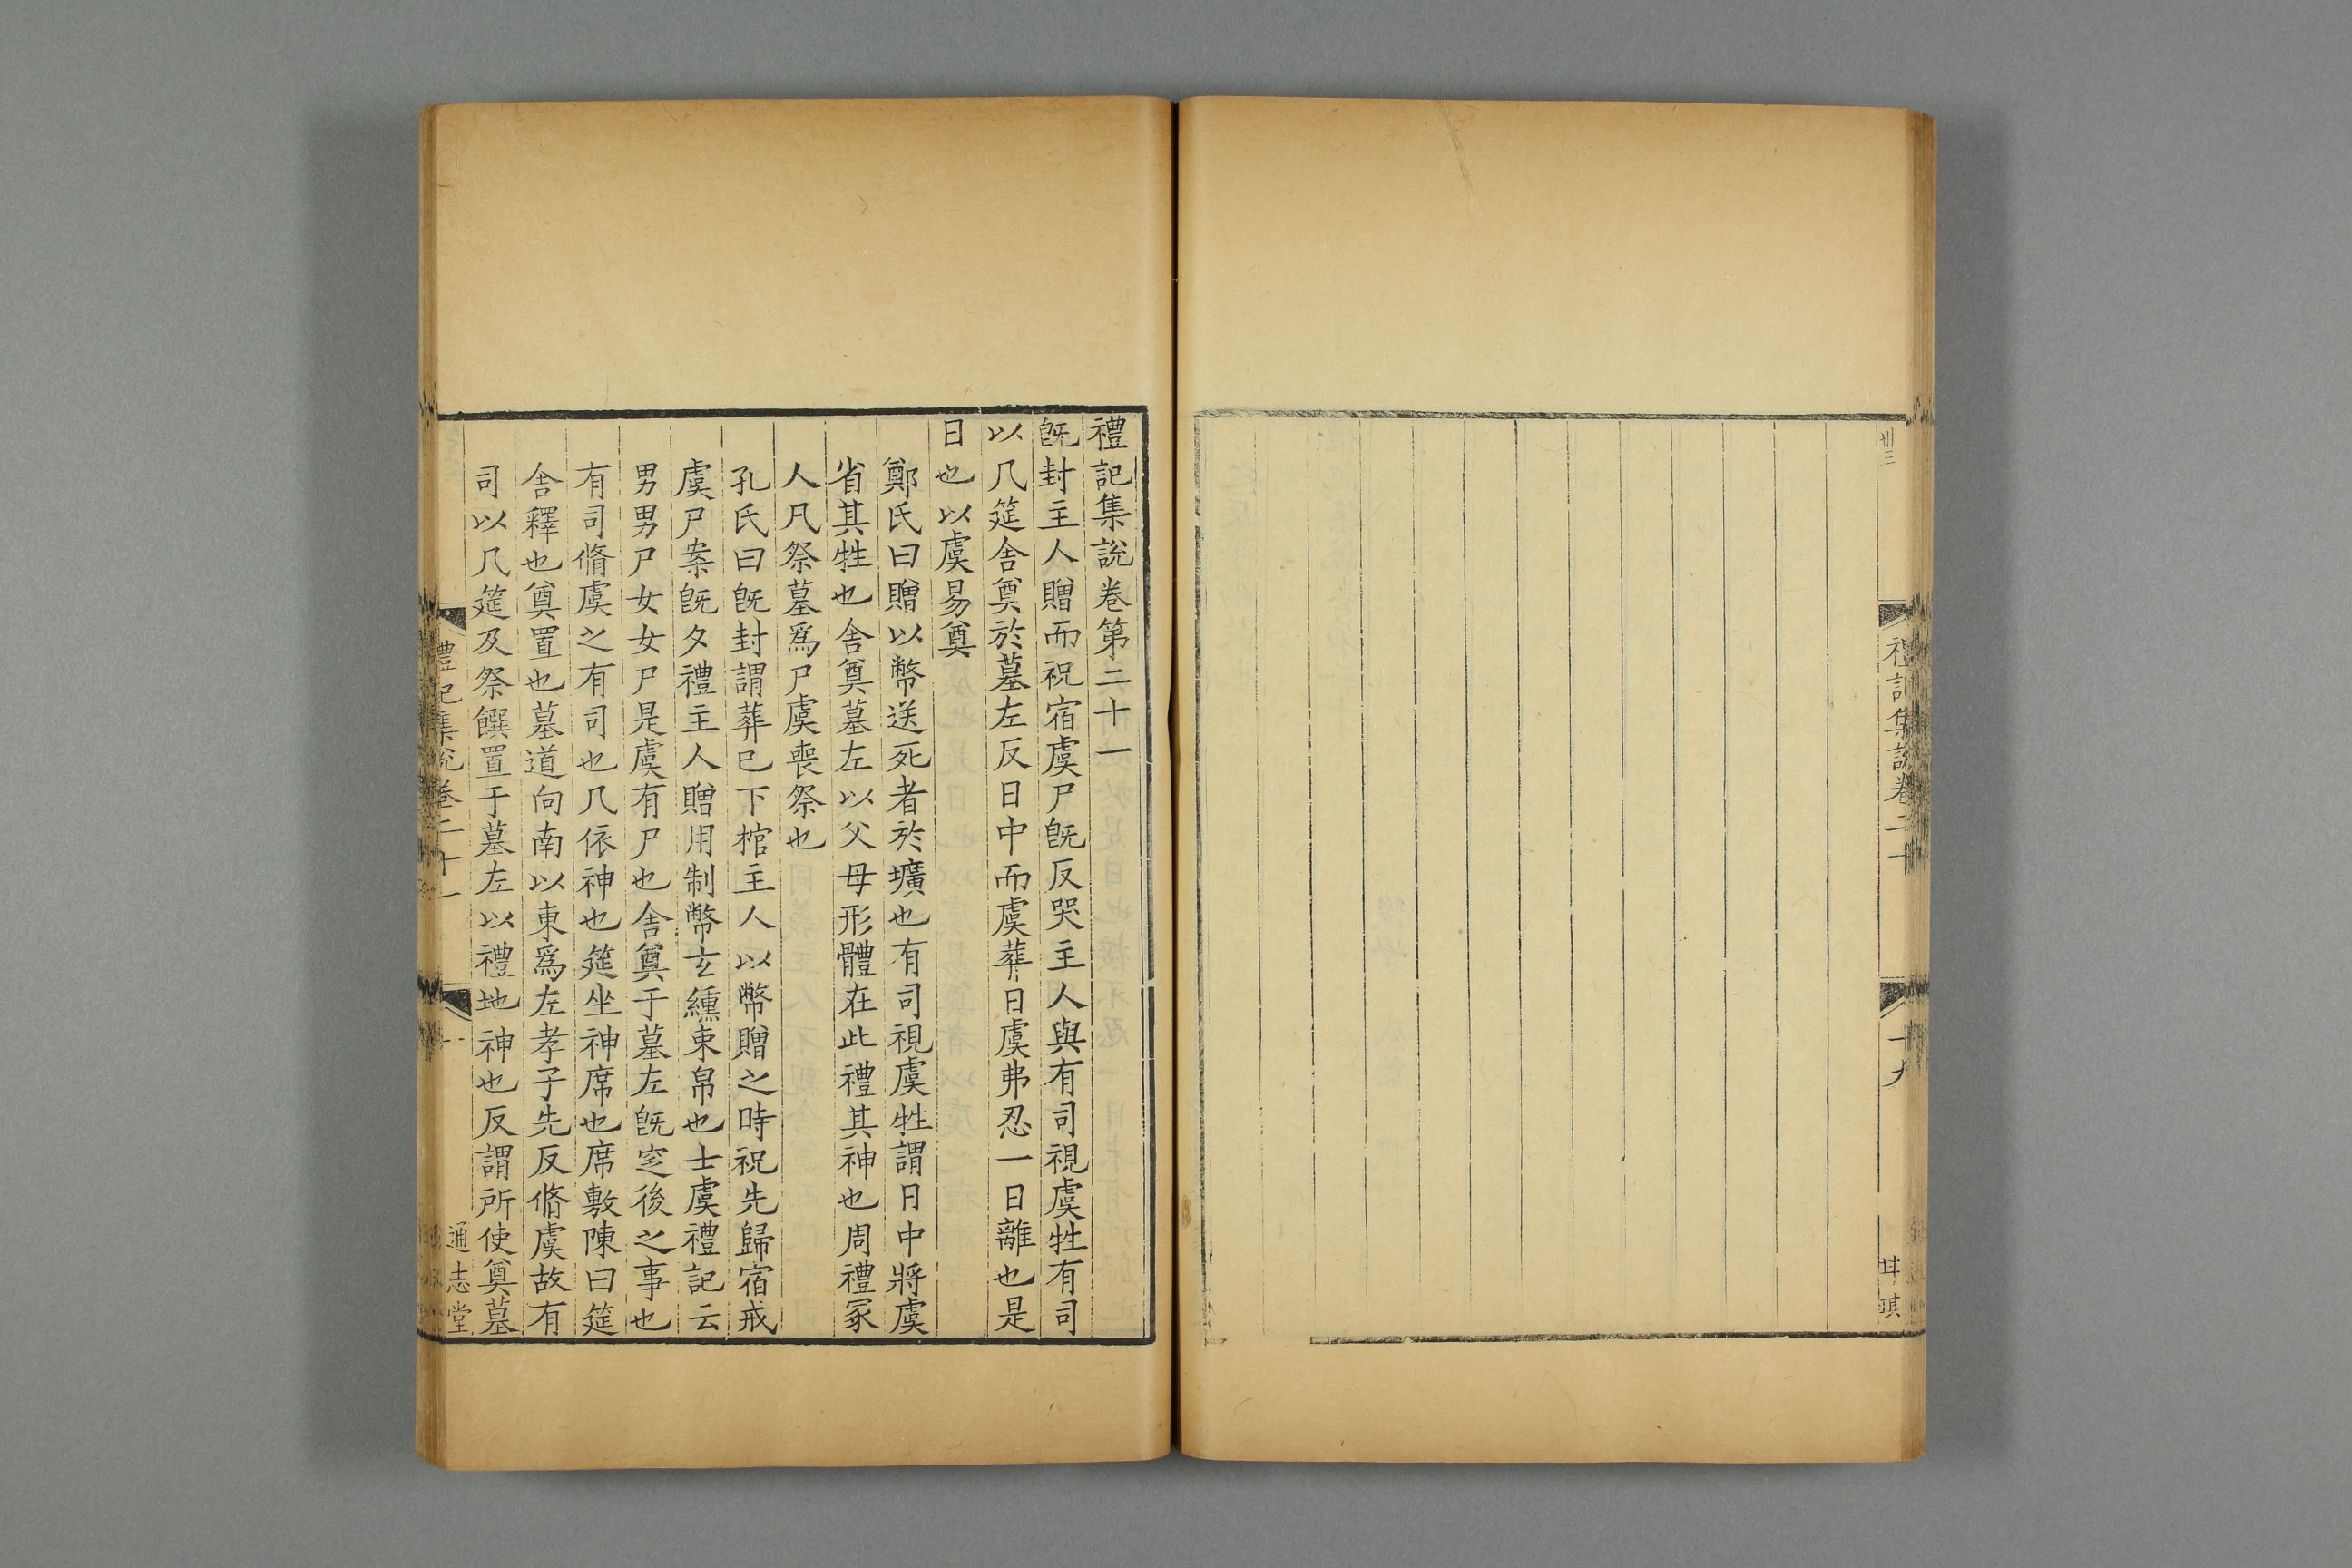 禮記集說卷二十
十九
禮記集說卷第二十一
旣封主人贈而祝宿虞尸旣反哭主人與有司視虞牲有司
以几筵舍奠於墓左反日中而虞葬日虞弗忍一日離也是
日也以虞易奠
鄭氏曰贈以幣送死者於壙也有司視虞牲謂日中將虞
省其牲也舍奠墓左以父母形體在此禮其神也周禮冢
人凡祭墓爲尸虞喪祭也
孔氏曰旣封謂葬已下棺主人以幣贈之時祝先歸宿戒
虞尸案旣夕禮主人贈用制幣玄纁束帛也士虞禮記云
男男尸女女尸是虞有尸也舍奠于墓左旣窆後之事也
有司脩虞之有司也几依神也筵坐神席也席敷陳曰筵
舍釋也奠置也墓道向南以東爲左孝子先反脩虞故有
司以几筵及祭饌置于墓左以禮地神也反謂所使奠墓
禮記集說卷二十一
通志堂